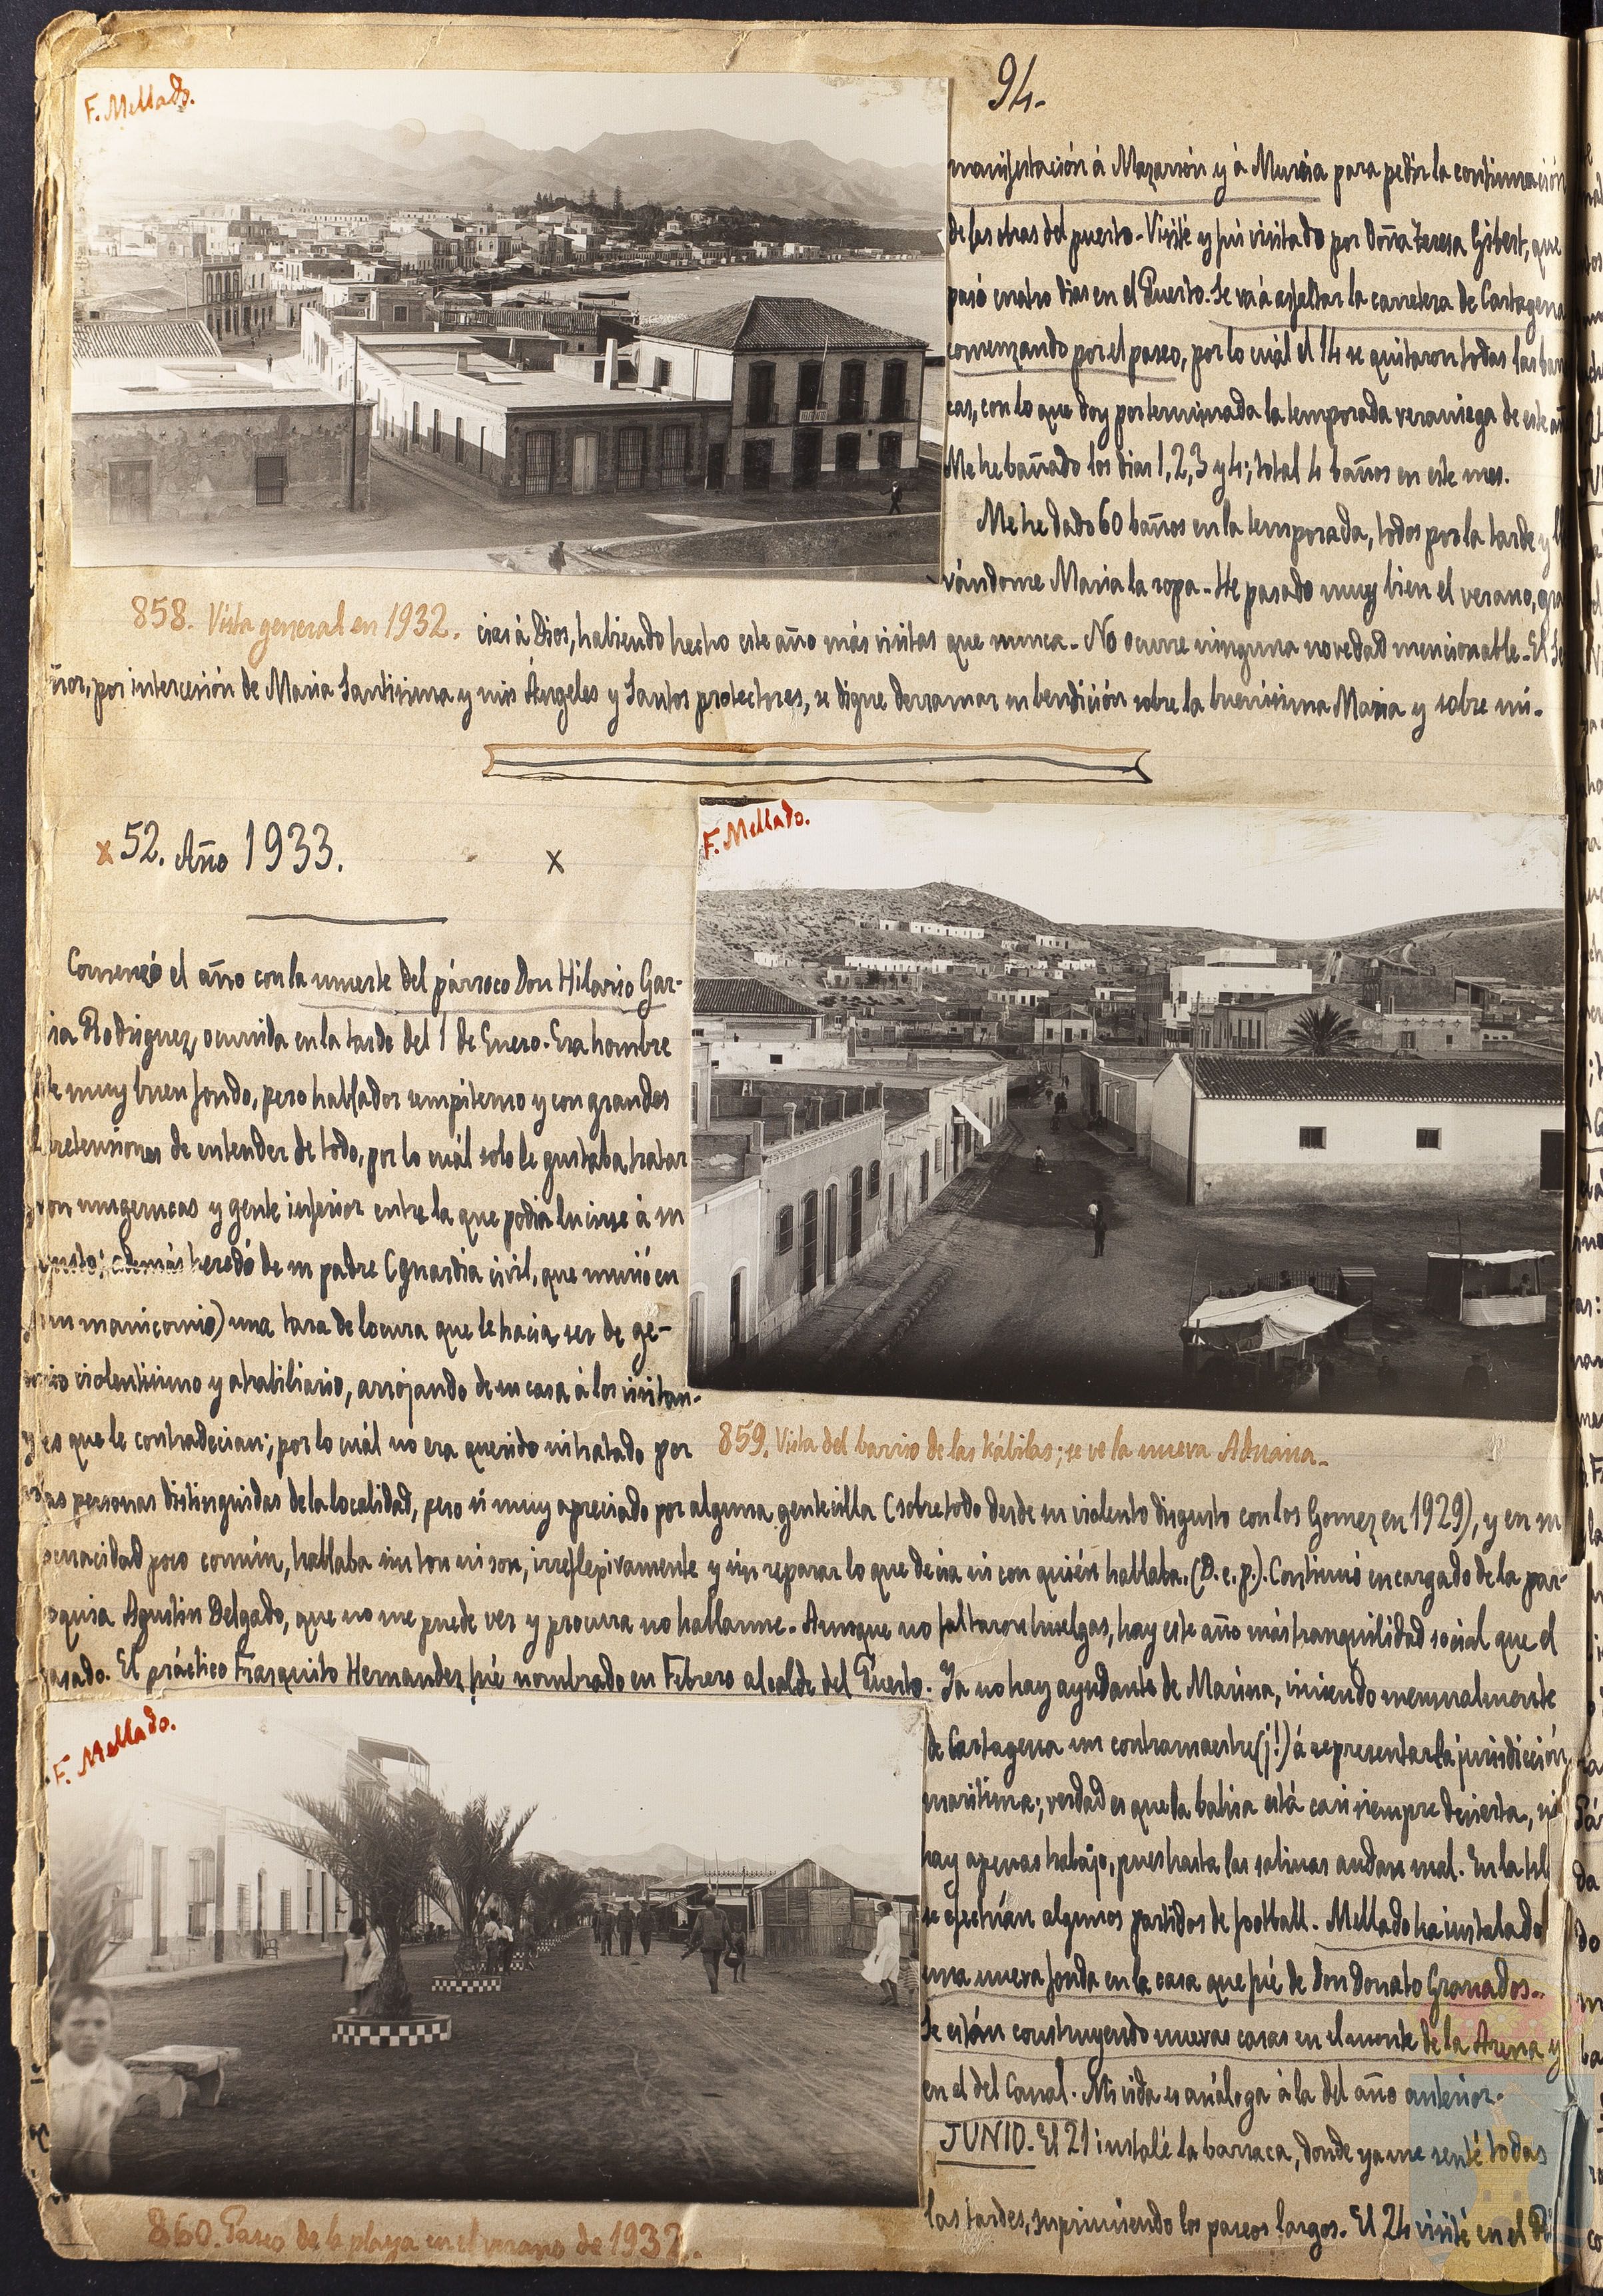 94.
F. Mellado.
manifestación á Mazarrón y á Murcia para pedir la continuación
de las obras del puerto. Visité y fuí visitado por Doña Teresa Gibert, que
pasó cuatro dias en el Puerto. Se vá á asfaltar la carretera de Cartagena
comenzando por el paseo, por lo cuál el 14 se quitaron todas las barra
cas, con lo que doy por terminada la temporada veraniega de este añ
Me he bañado los dias 1, 2, 3 y 4; total 4 baños en este mes.
Me he dado 60 baños en la temporada, todos por la tarde y l
vándome Maria la ropa. He pasado muy bien el verano, gra
858. Vista general en 1932.
cias á Dios, habiendo hecho este año más visitas que nunca. No ocurre ninguna novedad mencionable. El Se
ñor, por intercesión de Maria Santisima y mis Ángeles y Santos protectores, se digne derramar su bendición sobre la buenisima Maria y sobre mi.
x 52. Año 1933. x
F. Mellado.
Comenzó el año con la muerte del párroco Don Hilario Gar-
ia Rodriguez, ocurrida en la tarde del 1 de Enero. Era hombre
de muy buen fondo, pero hablador sempiterno y con grandes
pretensiones de entender de todo, por lo cuál solo le gustaba tratar
con mugerucas y gente inferior entre la que podia lucirse á su
gusto; además heredó de su padre (guardia civil, que murió en
un manicomio) una tara de locura que le hacia ser de ge-
nio violentisimo y atrabiliario, arrojando de su casa á los visitan-
es que le contradecian; por lo cuál no era querido ni tratado por
859. Vista del barrio de las Kábilas; se ve la nueva Aduana.
las personas distinguidas de la localidad, pero si muy apreciado por alguna gentecilla (sobre todo desde su violento disgusto con los Gomez en 1929), y en su
locuacidad poco común, hablaba sin ton ni son, irreflexivamente y sin reparar lo que decia ni con quién hablaba. (D. e. p.). Continuó encargado de la par-
oquia Agustin Delgado, que no me puede ver y procura no hallarme. Aunque no faltaron huelgas, hay este año más tranquilidad social que el
pasado. El práctico Frasquito Hernandez fué nombrado en Febrero alcalde del Puerto. Ya no hay ayudante de Marina, viniendo mensualmente
F. Mellado.
de Cartagena un contramaestre (¡!) á representar la jurisdicción
maritima; verdad es que la bahia está casi siempre desierta, ni
hay apenas trabajo, pues hasta las salinas andan mal. En la
se efectúan algunos partidos de football. Mellado ha instalado
una nueva fonda en la casa que fué de Don Donato Granados.
Se están construyendo nuevas casas en el monte de la Arena y
en el del Canal. Mi vida es análoga á la del año anterior.
JUNIO. El 21 instalé la barraca, donde ya me senté todas
las tardes, suprimiendo los paseos largos. El 24 visité en el
860. Paseo de la playa en el verano de 1932.